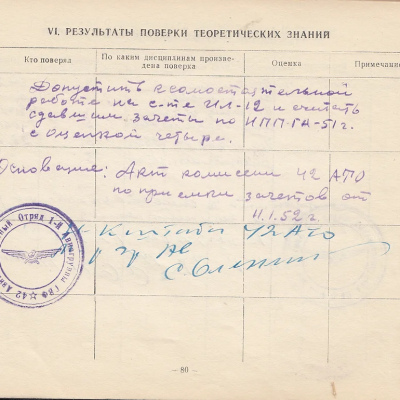 VI. РЕЗУЛЬТАТЫ ПОВЕРКИ ТЕОРЕТИЧЕСКИХ ЗНАНИЙ
Кто поверял
По каким дисциплинам произведена поверка
Оценка
Примечание
Допустить к самостоятельной
работе на с-те ИЛ-12 и считать
сдавшим зачеты по НПП-ГА-51г.
с оценкой четыре.
Основание: Акт комиссии 42 АТО
по приемке зачетов от
11.1.52г.
42 АТО
— 80 —